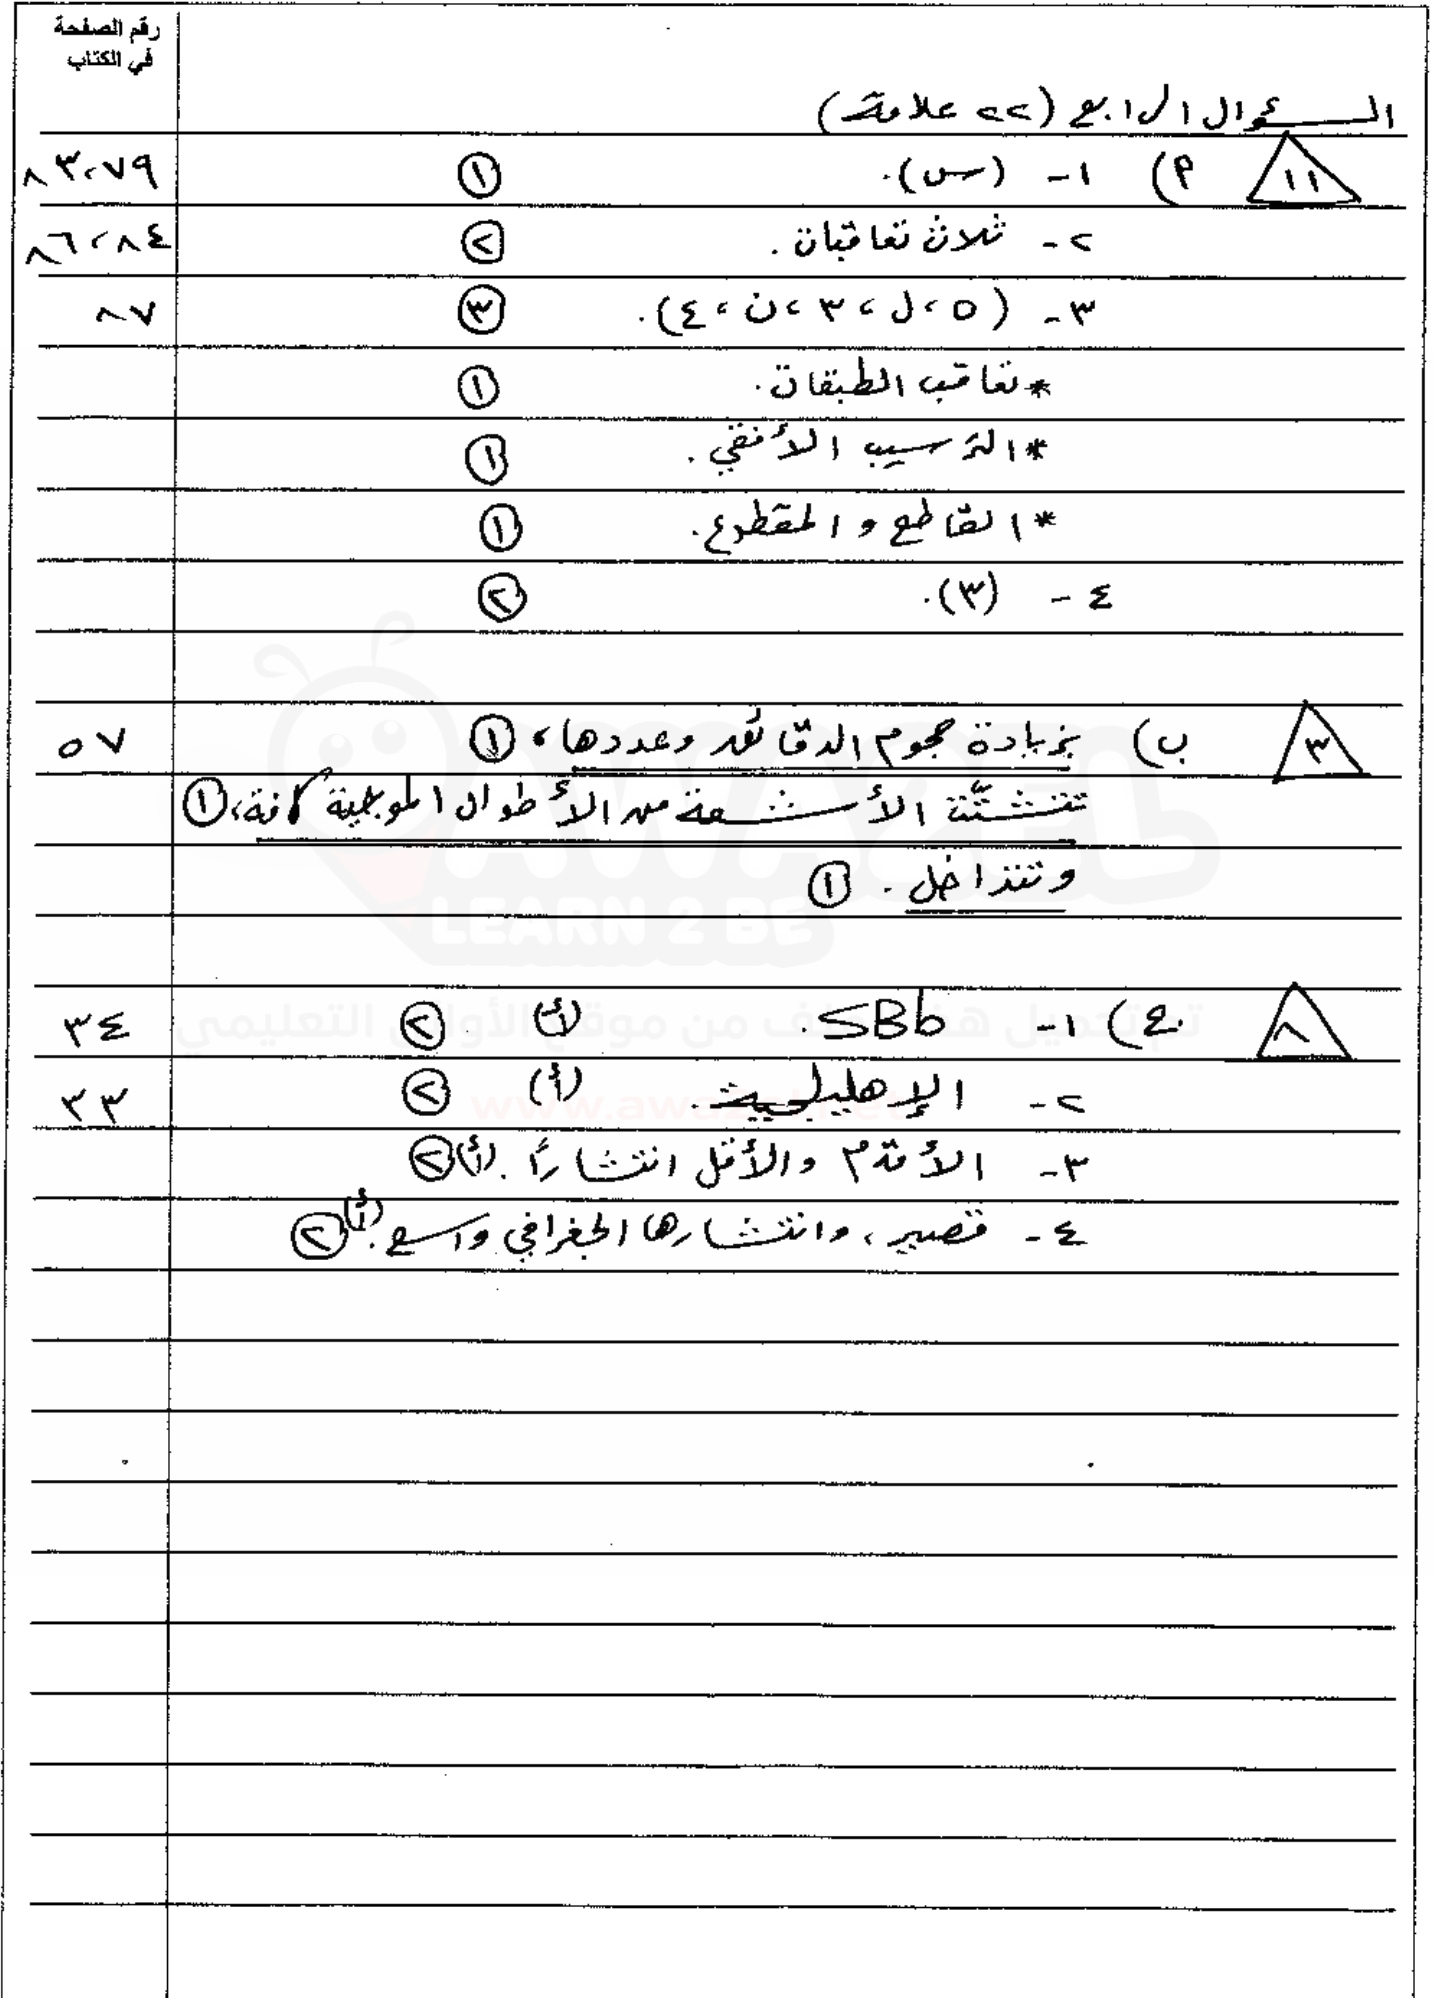 رقم الصفحة
في الكتاب
السؤال الرابع (٢٢ علامة)
١١ أ) ١- (س). ١ ٨٣،٧٩
٢- ثلاث تعاقبات. ٢ ٨٦،٨٤
٣- (٥، ل، ٣، ن، ٤). ٣ ٨٧
*تعاقب الطبقات. ١
*الترسيب الأفقي. ١
*القاطع والمقطوع. ١
٤- (٣). ٢
٣ ب) بزيادة حجوم الدقائق وعددها، ١ ٥٧
تتشتّت الأشعة من الأطوال الموجية كافة، ١
وتتداخل. ١
٨ ج) ١- SBb. (أ) ٢ ٣٤
٢- الإهليلجية. (أ) ٢ ٣٣
٣- الأقدم والأقل انتشارًا. (أ) ٢
٤- قصير، وانتشارها الجغرافي واسع. (أ) ٢
AWA2EL
LEARN 2 BE
تم تحميل هذا الملف من موقع الأوائل التعليمي